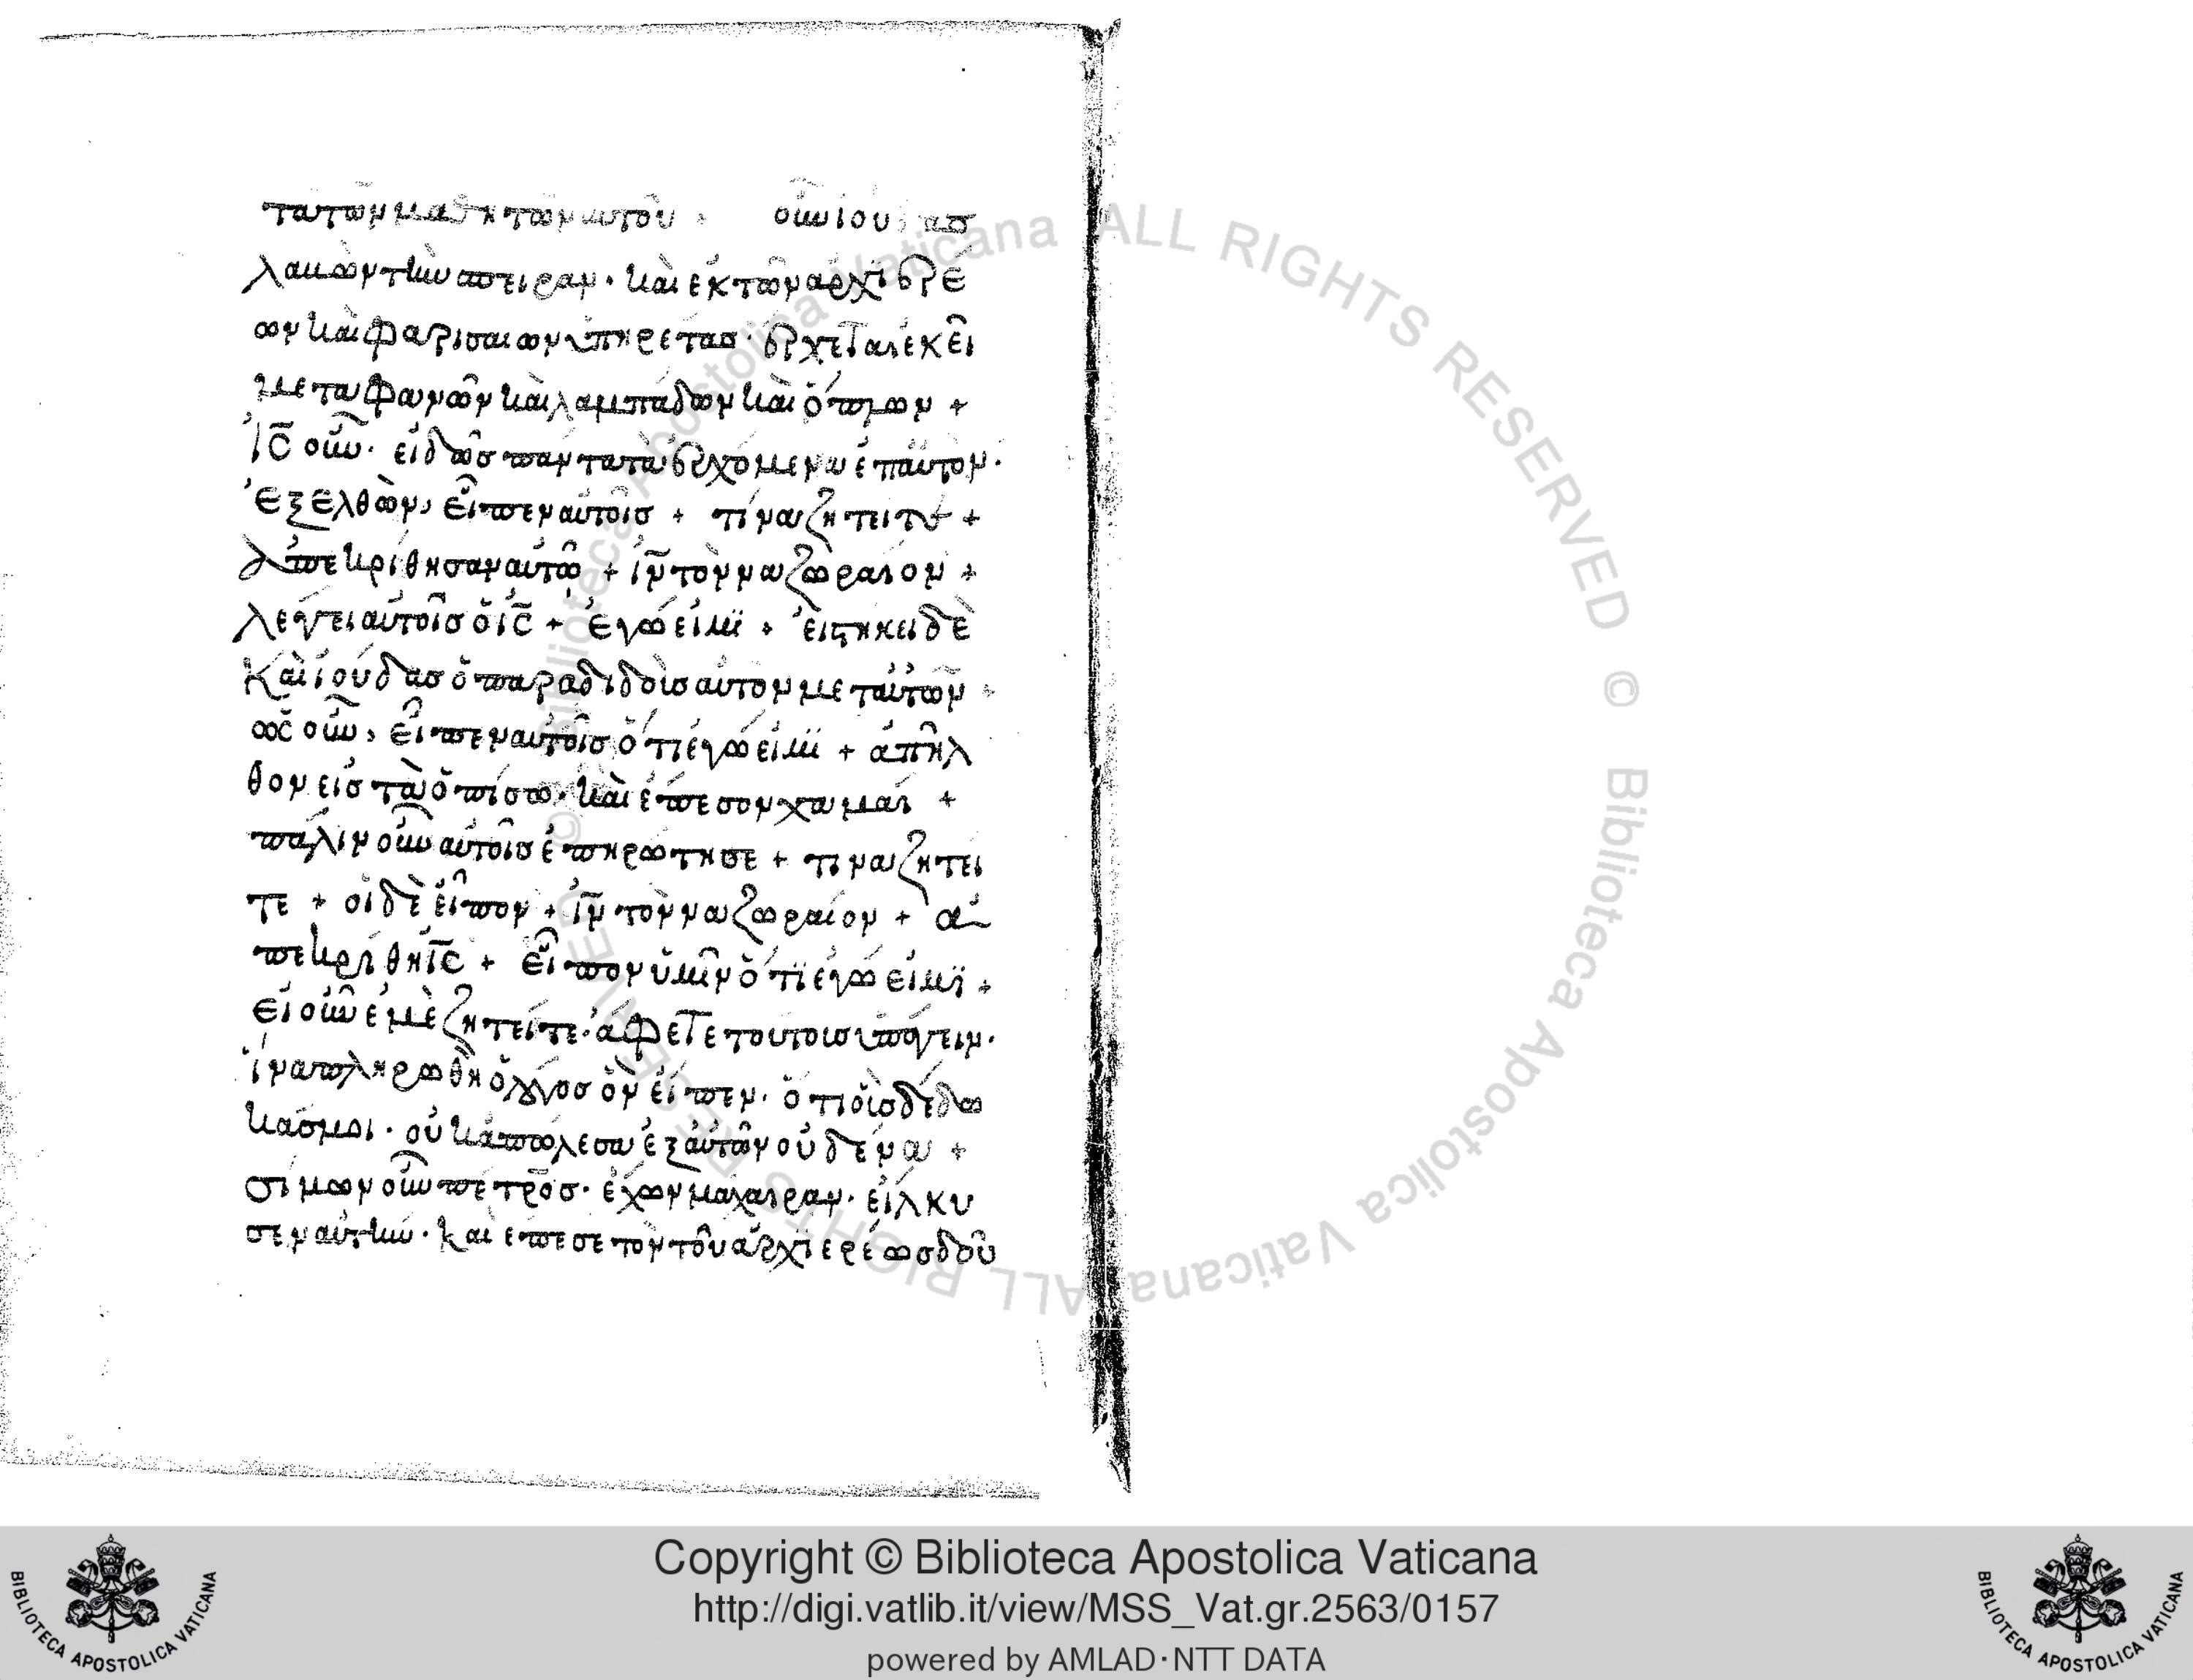 τὰ τῶν μαθητῶν αὐτοῦ · ὁ οὖν ἰούδασ
λαβὼν τὴν σπειραν · καὶ ἐκ τῶν ἀρχιερέ
ων καὶ φαρισαίων ὑπηρέτασ · ἔρχεται ἐκεῖ
μετὰ φανῶν καὶ λαμπάδων καὶ ὅπλων +
ἰς̅ οὖν · εἰδὼσ πάντα τὰ ἐρχόμενα ἐπ αὐτον ·
ἐξελθὼν, εἶπεν αὐτοῖσ + τίνα ζητειτε +
ἀπεκρίθησαν αὐτῶ + ἰν̅ τὸν ναζωραίον +
λέγει αὐτοῖσ ὁ ἰς̅ + ἐγώ εἰμϊ + εἱστήκει δὲ
καὶ ἰούδασ ὁ παραδιδοὺσ αὐτον μετ αὐτῶν +
ὡς οὖν, εἶπεν αὐτοῖσ ὅτι ἐγώ εἰμϊ + ἀπῆλ
θον εἰσ τὰ ὀπίσω · καὶ ἔπεσον χαμαί +
πάλιν οὖν αὐτοῖσ ἐπηρώτησε + τινα ζητεί
τε + οἱ δὲ εἶπον + ἰν̅ τὸν ναζωραίον + ἀ
πεκρίθη ἰς̅ + εἶπον ὑμῖν ὅτϊ ἐγώ εἰμϊ +
εἰ οὖν ἐμὲ ζητείτε · ἄφετε τουτουσ ὑπάγειν ·
ἵνα πληρωθῆ ὁ λόγοσ ὃν εἶπεν · ὅτι οὓσ δέδω
κάσ μοι · οὐκ ἀπώλεσα ἐξ αὐτῶν οὐδένα +
σίμων οὖν πέτροσ · ἔχων μάχαιραν · εἵλκυ
σεν αὐτὴν · καὶ ἔπεσε τὸν τοῦ ἀρχιερέωσ δοῦ
Copyright © Biblioteca Apostolica Vaticana
http://digi.vatlib.it/view/MSS_Vat.gr.2563/0157
powered by AMLAD·NTT DATA
BIBLIOTECA APOSTOLICA VATICANA
BIBLIOTECA APOSTOLICA VATICANA
© Biblioteca Apostolica Vaticana ALL RIGHTS RESERVED © Biblioteca Apostolica Vaticana ALL RIGHTS RESERVED